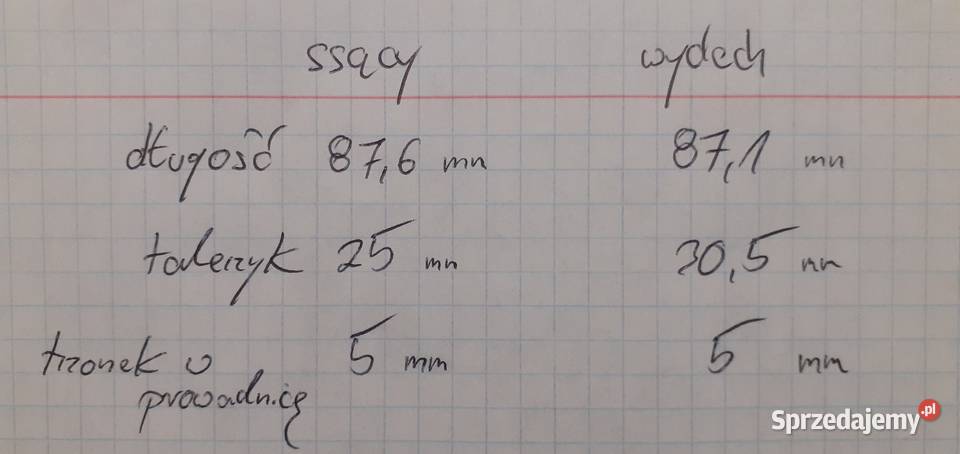 ssący wydech
długość 87,6 mm 87,1 mm
talerzyk 25 mm 30,5 mm
trzonek w 5 mm 5 mm
prowadnicę
Sprzedajemy.pl